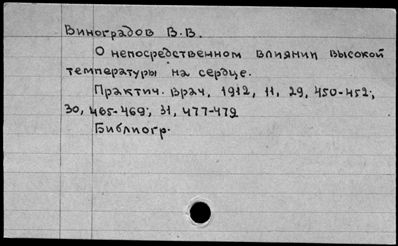 Виноградов В.В.
О непосредственном влиянии высокой
температуры на сердце.
Практич. врач, 1912, 11, 29, 450-452;
30, 465-469; 31, 477-479
Библиогр.